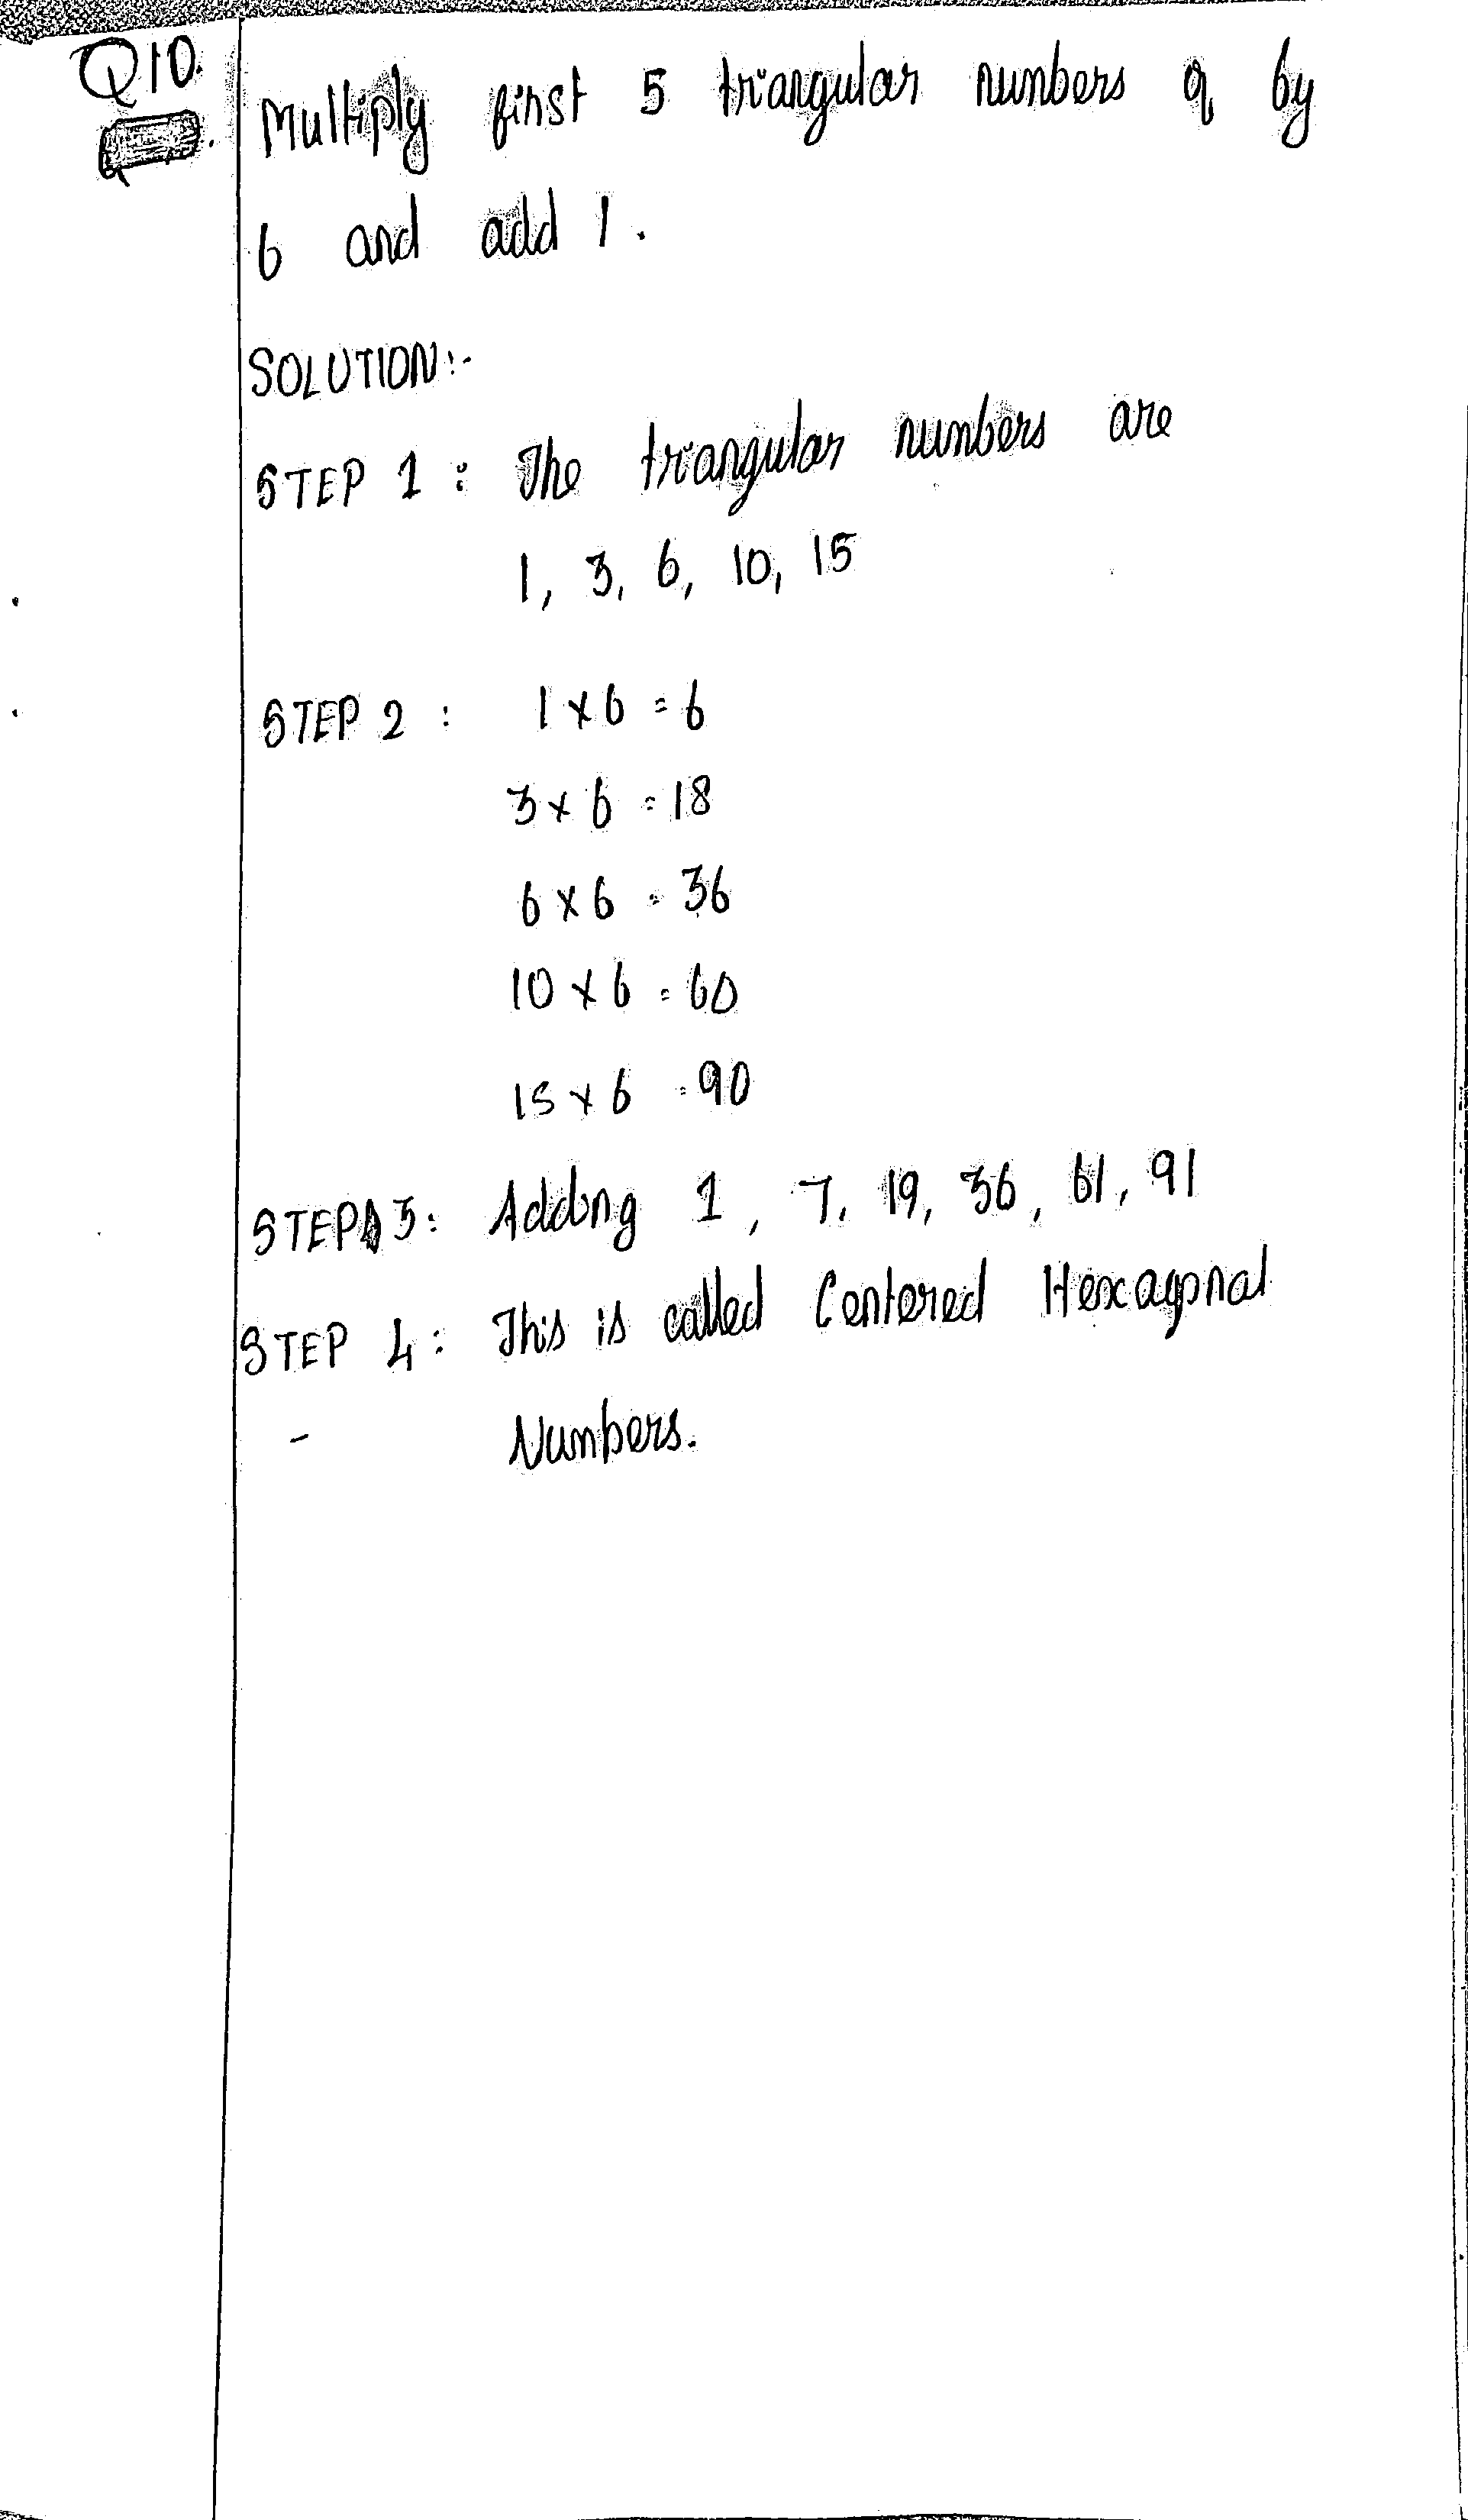 Q10.
Multiply first 5 triangular numbers q by
6 and add 1.
SOLUTION:-
STEP 1 : The triangular numbers are
1, 3, 6, 10, 15
STEP 2 : 1 x 6 = 6
3 x 6 = 18
6 x 6 = 36
10 x 6 = 60
15 x 6 = 90
STEP 3: Adding 1, 7, 19, 36, 61, 91
STEP 4: This is called Centered Hexagonal
Numbers.